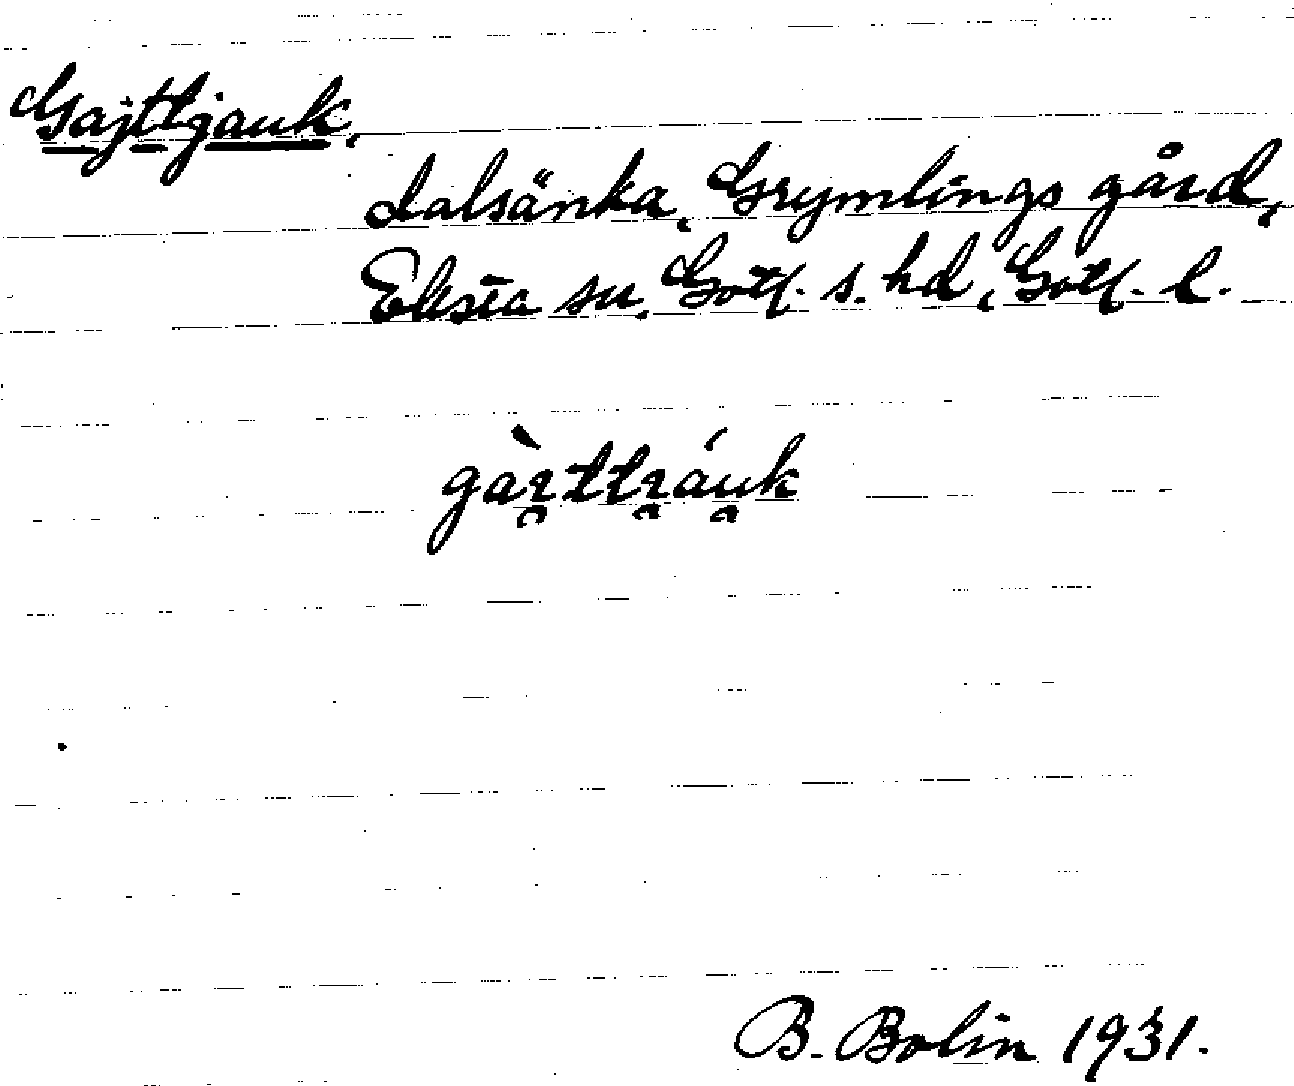 Gajttjauk,
dalsänka, Grymlings gård,
Eksta sn, Gotl. s. hd, Gotl. l.
B. Bolin 1931.